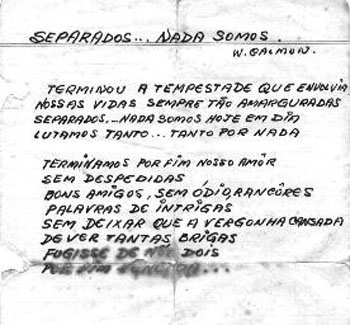 SEPARADOS... NADA SOMOS.
W. GALMON.
TERMINOU A TEMPESTADE QUE ENVOLVIA
NOSSAS VIDAS SEMPRE TÃO AMARGURADAS
SEPARADOS...NADA SOMOS HOJE EM DIA
LUTAMOS TANTO... TANTO POR NADA
TERMINAMOS POR FIM NOSSO AMÔR
SEM DESPEDIDAS
BONS AMIGOS, SEM ÓDIO, RANCÔRES
PALAVRAS DE INTRIGAS
SEM DEIXAR QUE A VERGONHA CANSADA
DE VER TANTAS BRIGAS
FUGISSE DE NÓS DOIS
POR FIM